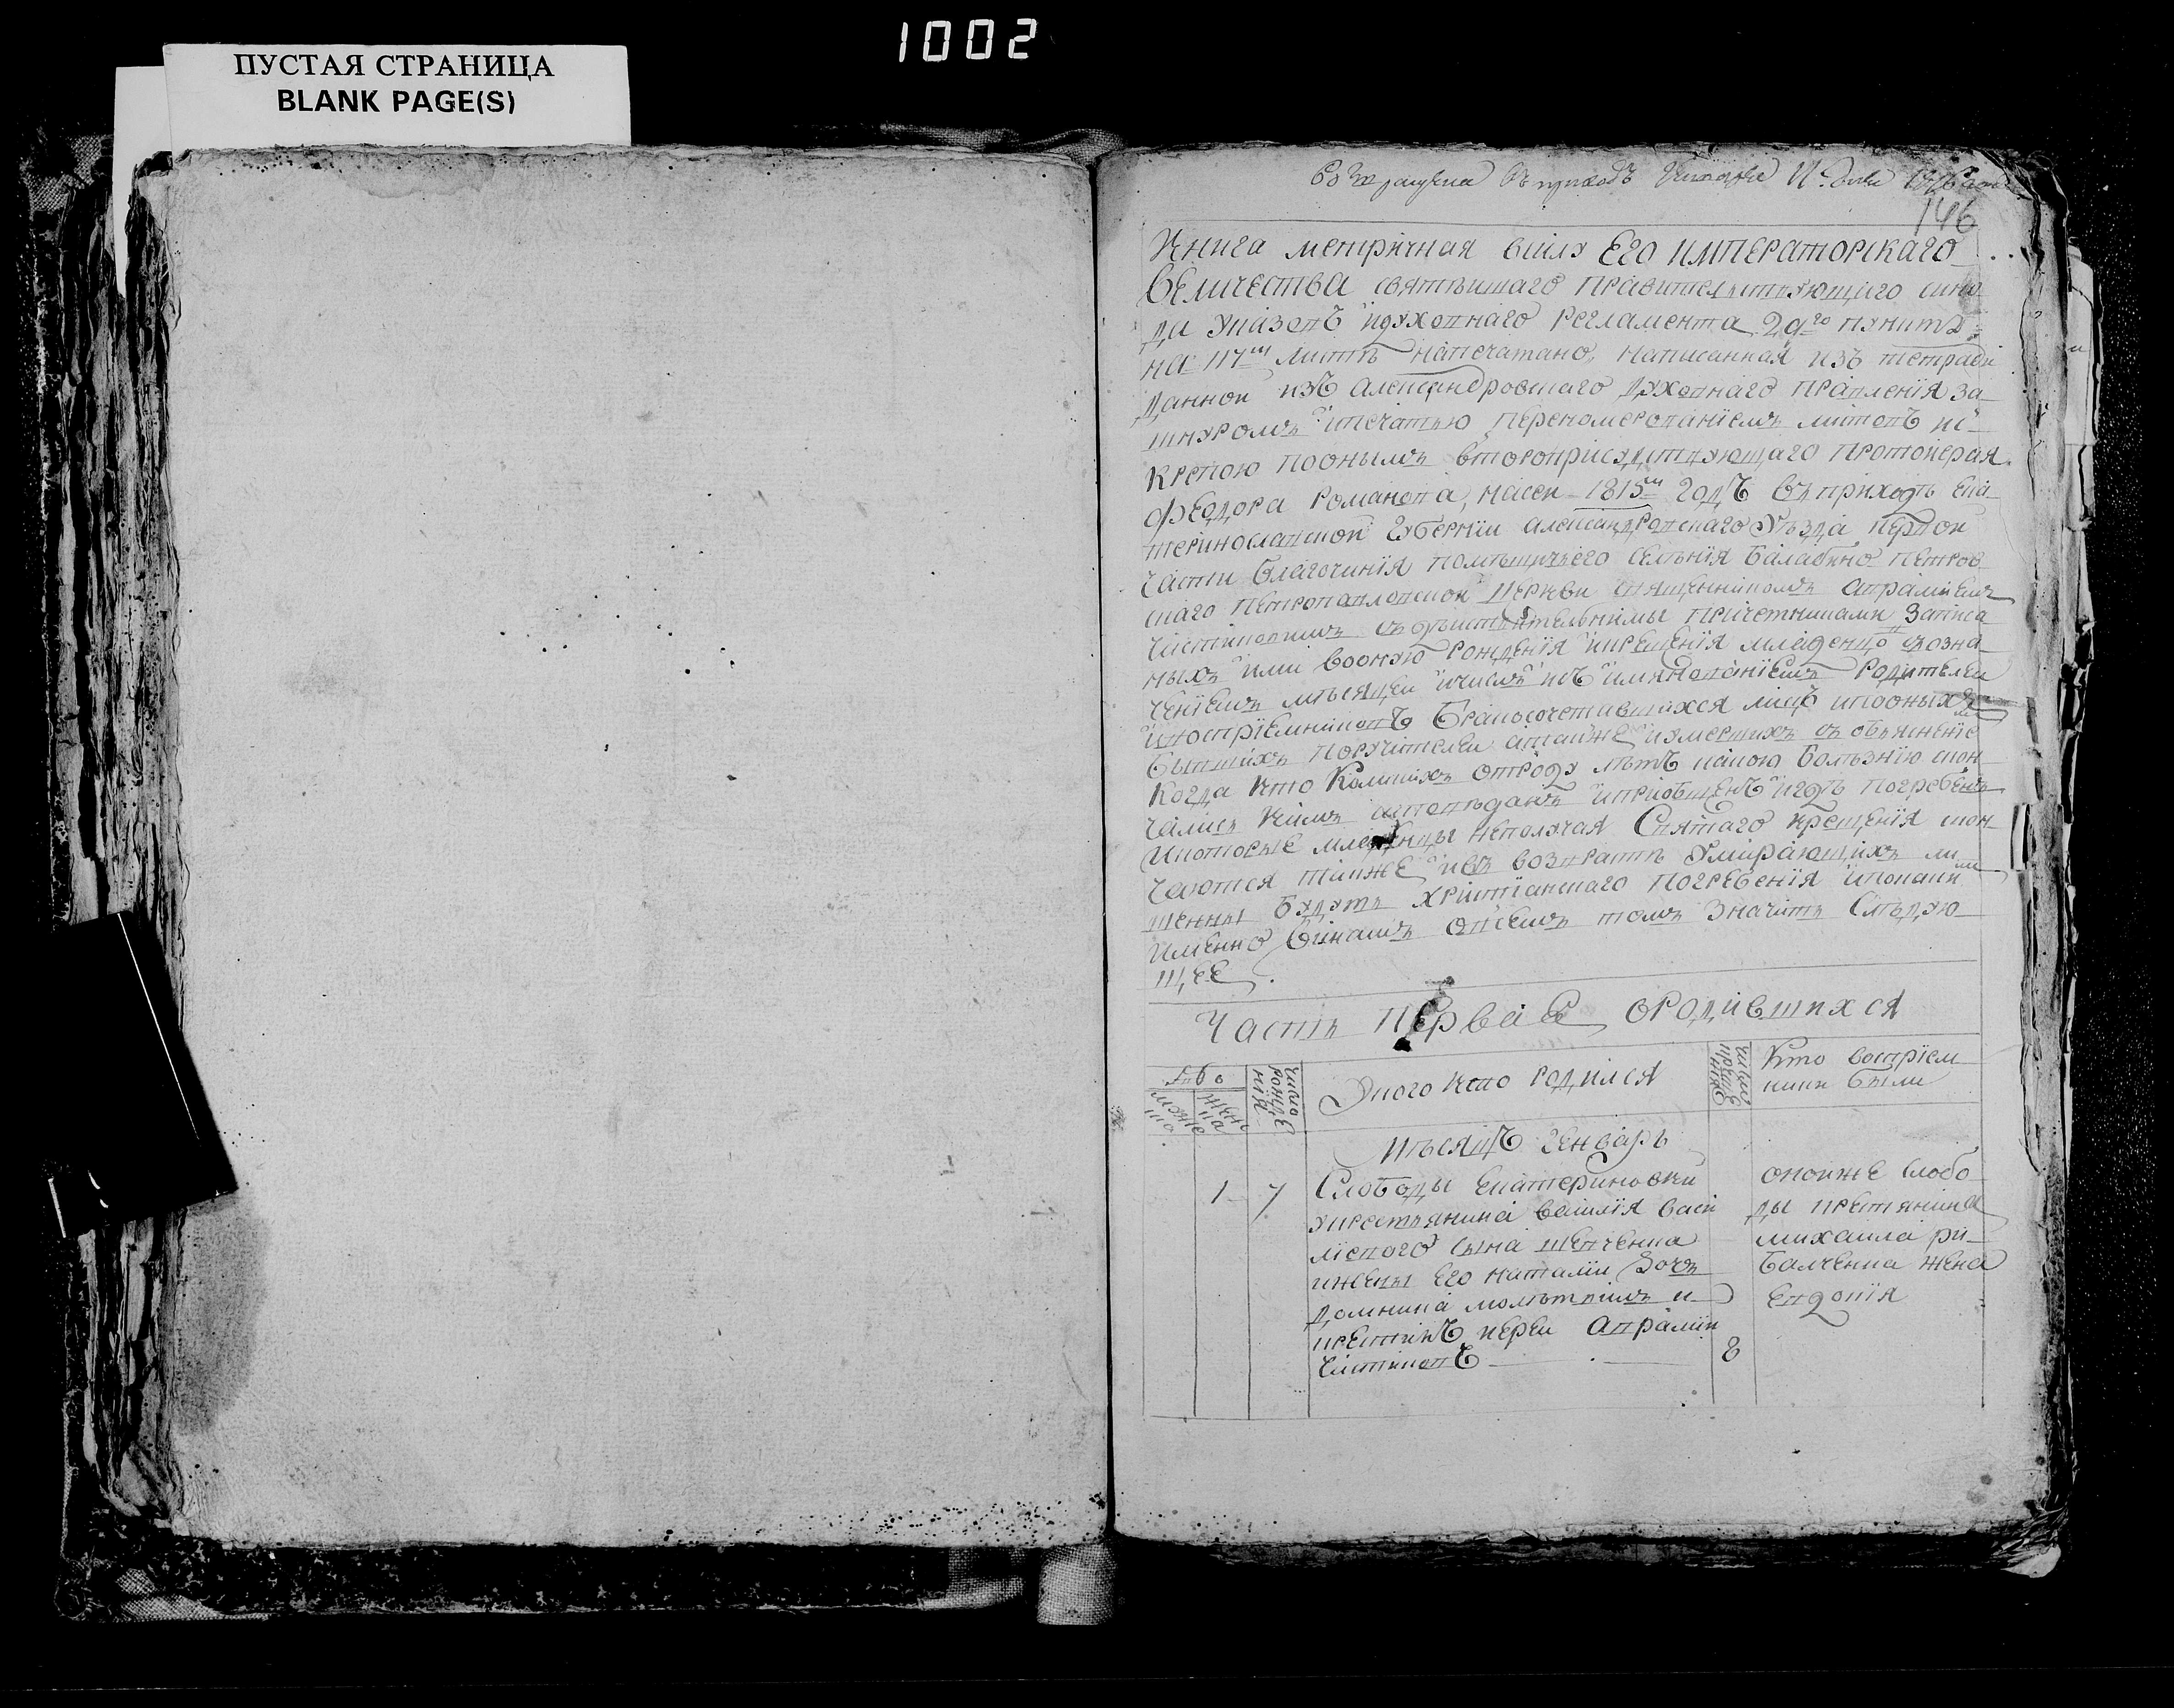 1002
ПУСТАЯ СТРАНИЦА
BLANK PAGE(S)
въ приходъ
146
Книга метричная всилу ЕГО ИМПЕРАТОРСКАГО
ВЕЛИЧЕСТВА святѣишаго правителствующаго сино
да указовъ идуховнаго регламента 29го пункта
на 117м листѣ напечатано, написанная изъ тетради
данной изъ александровскаго духовнаго правленія за
шнуромъ ипечатью переномерованіемъ листовъ ис
крепою поонымъ второприсудствующаго протоіерея
Феодора Романова, насеи 1815й годъ въ приходѣ ека
теринославской губерніи александровскаго уѣзда первой
части благочинія помѣщичьего селѣнія балабино петров
скаго петропавловской церкви священникомъ авраміемъ
съдѣиствительними причетниками записа
ныхъ ими воонуѣ рожденія икрещенія младенцовъ созна
ченіемъ мѣсяцеи ичислъ исъ имянованіемъ родителеи
ивоспріемниковъ бракосочетавшихся лицъ ипооныхъ
бывшихъ поручителеи атакже иумершихъ съ обьясненіе
когда кто Коликихъ отроду лѣтъ какою болѣзнію скон
чались кимъ исповѣданъ ипріобщенъ игдѣ погребенъ
икоторые младенцы неполучая Святаго крещенія скон
чаются также ивъ возрастѣ умирающихъ ли
шенны будутъ христіанскаго погребенія ипокаки
именно винамъ овсемъ томъ значитъ слѣдую
щее
Часть Первая ородившихся
число рожденія
Укого кто родился
Кто воспріем
ники были
мѣсяцъ генварь
1 7 Слободы екатериновки
укрестьянина василія васи
ліевого сына шевченка
ижены его наталіи дочь
домникіа молѣтвилъ и
крестилъ иереи аврамій
8
оноиже слобо
ды крестянина
михаила ри
балченка жена
евдокія